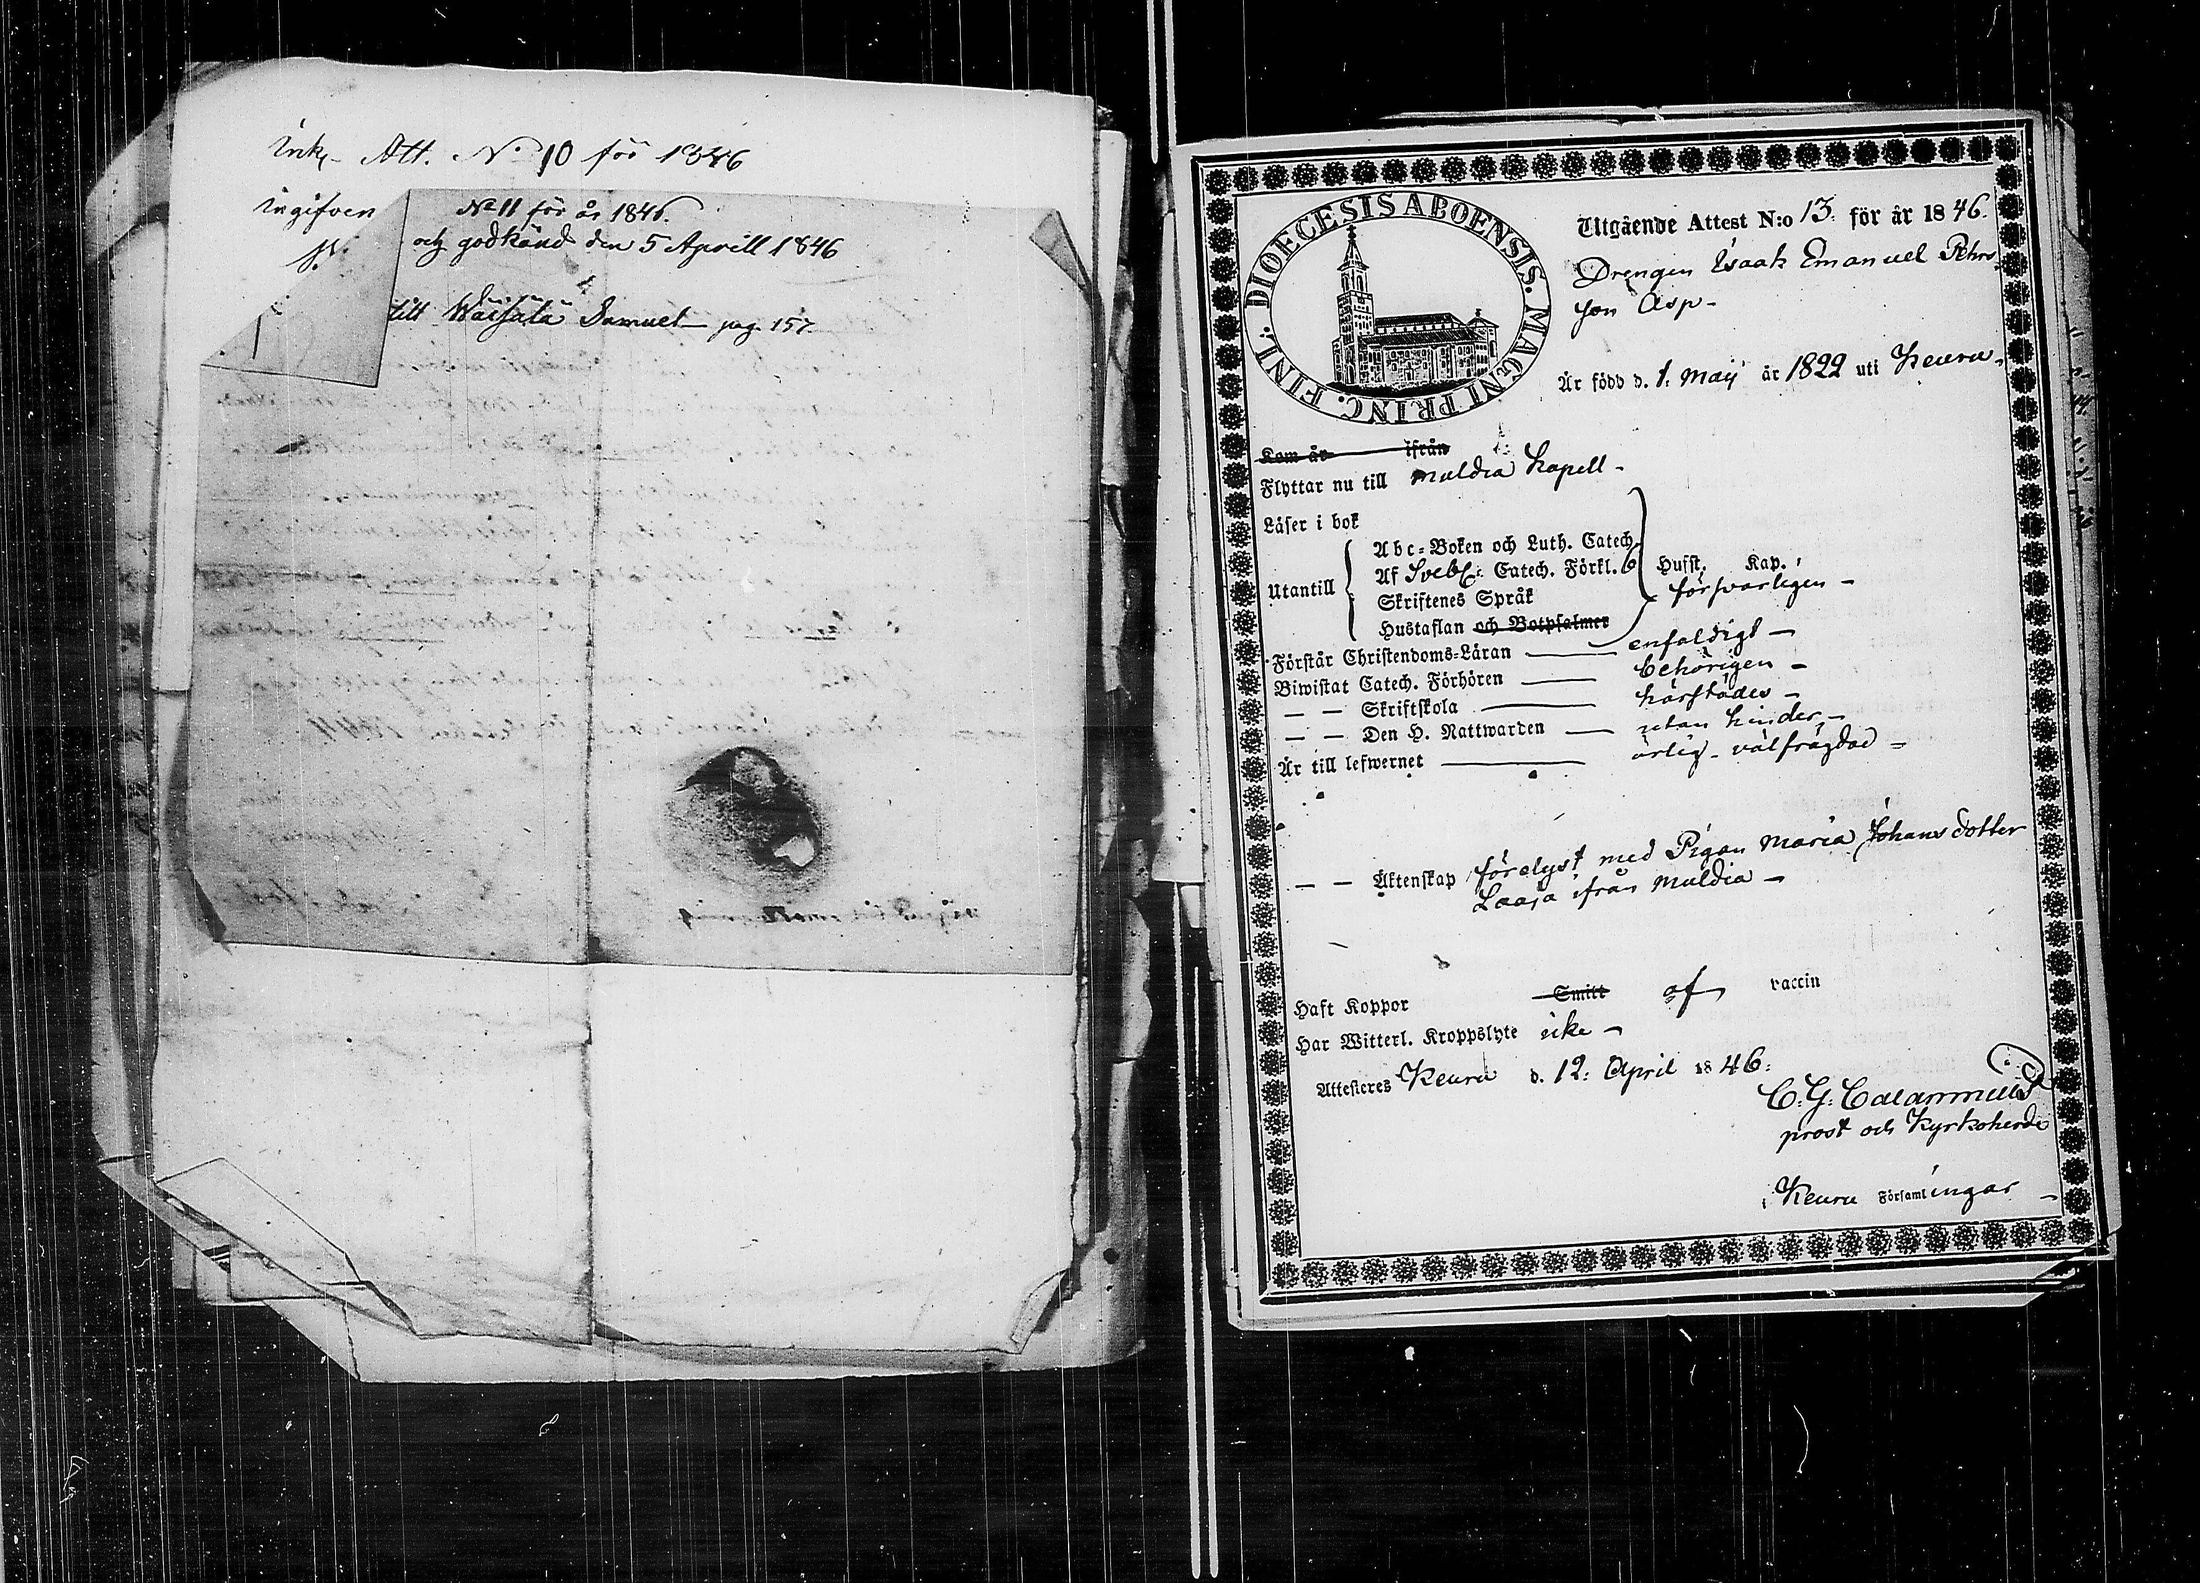 Ink. Att. No 10 för 1846
Ingifven
No 11 för år 1846.
och godkänd den 5 Aprill 1846
till Wäisälä Samuel pag. 157
DIOECESIS ABOENSIS. MAGNI PRINC. FINL.
Utgående Attest N:o 13. för år 1846.
Drengen Isaak Emanuel Pehrs
son Asp-
Är född d. 1. Maij år 1822 uti Keuru-
Kom år ifrån
Flyttar nu till Muldia Kapell-
Läser i bok
Abc-Boken och Luth. Catech.
Utantill
Af Svebel: Catech. Förkl. 6 Hufst. Kap.
försvarligen-
Skriftenes Språk
Hustaflan och Botpsalmer
Förstår Christendoms-Läran enfaldigt-
Biwistat Catech. Förhören behörigen-
— — Skriftskola härstädes-
— — Den H. Nattwarden utan hinder,-
Är till lefwernet ärlig-välfrägdad-
— — Äktenskap förelyst med Pigan Maria Johans dotter
Laaja ifrån Muldia-
Haft Koppor Smitt af vaccin
Har Witterl. Kroppslyte icke-
Attesteres Keuru d. 12: April 1846:
C. G. Calamnius
prost och Kyrkoherde
i Keuru Församlingar-